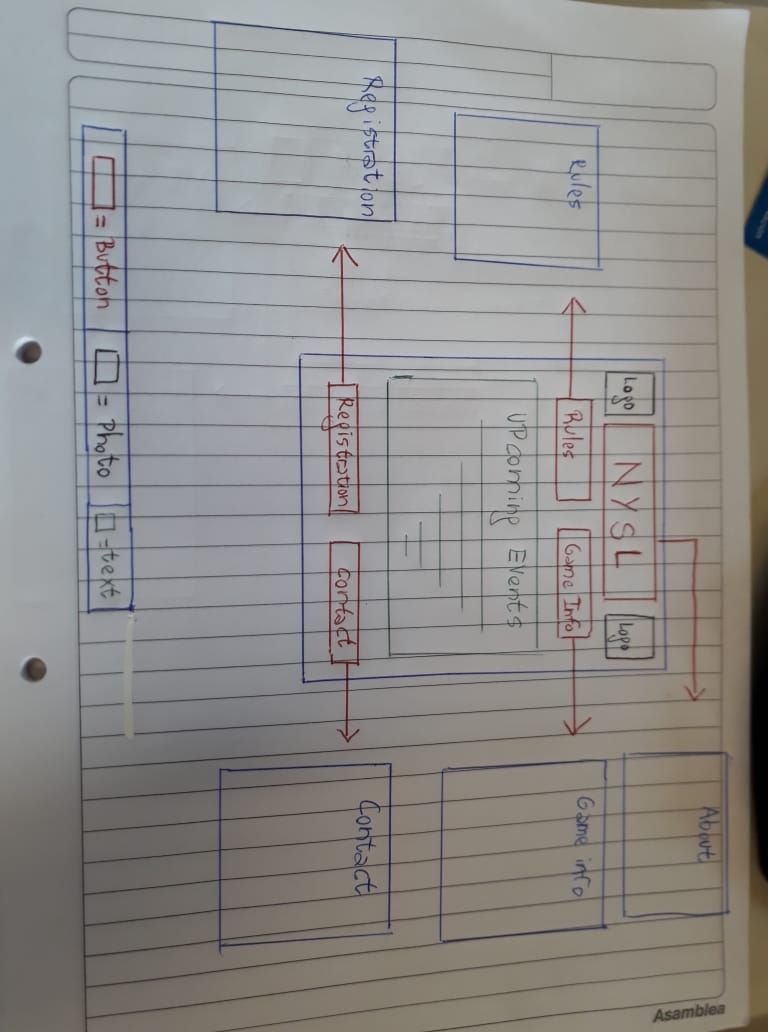 ación
Asamblea
About
Logo NYSL Logo
Rules
Rules
Game Info
Game info
UPcoming Events
Registration
Registration
Contact
Contact
= Button
= Photo
= text